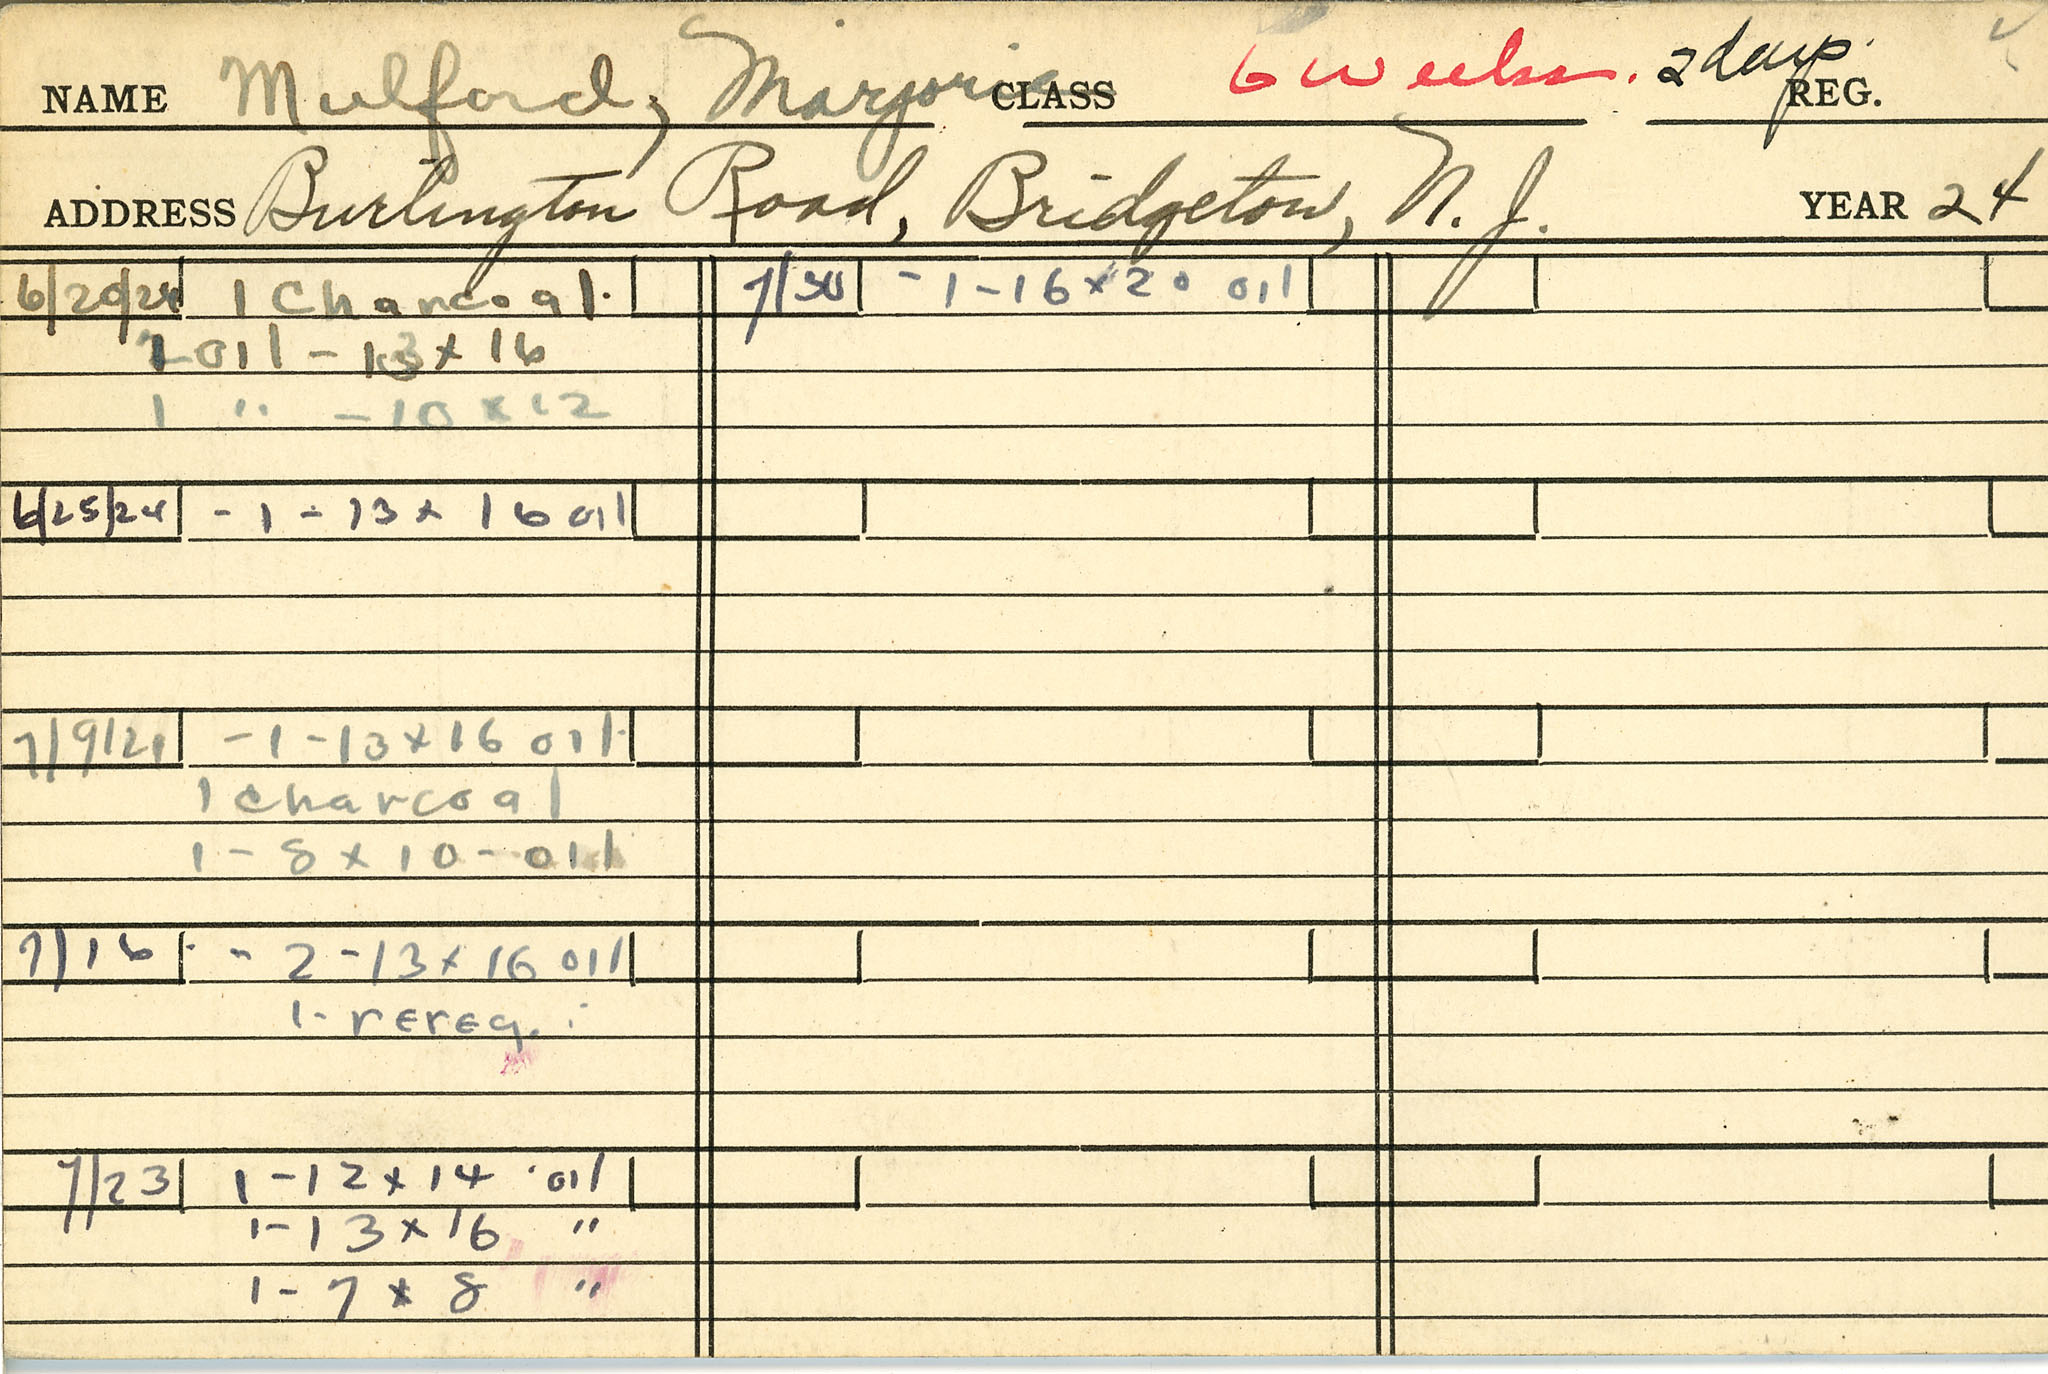 NAME Mulford, Marjorie CLASS 6 weeks. 2 days. REG.
ADDRESS Burlington Road, Bridgeton, N. J. YEAR 24
6/20/24 1 Charcoal.
oil - 13 x 16
1 " - 10 x 12
6/25/24 - 1 - 13 x 16 oil
7/9/24 - 1 - 13 x 16 oil.
1 charcoal
1 - 8 x 10 - oil
7/16 - 2 - 13 x 16 oil
1 - rereg.
7/23 1 - 12 x 14 oil
1 - 13 x 16 "
1 - 7 x 8 "
7/30 - 1 - 16 x 20 oil